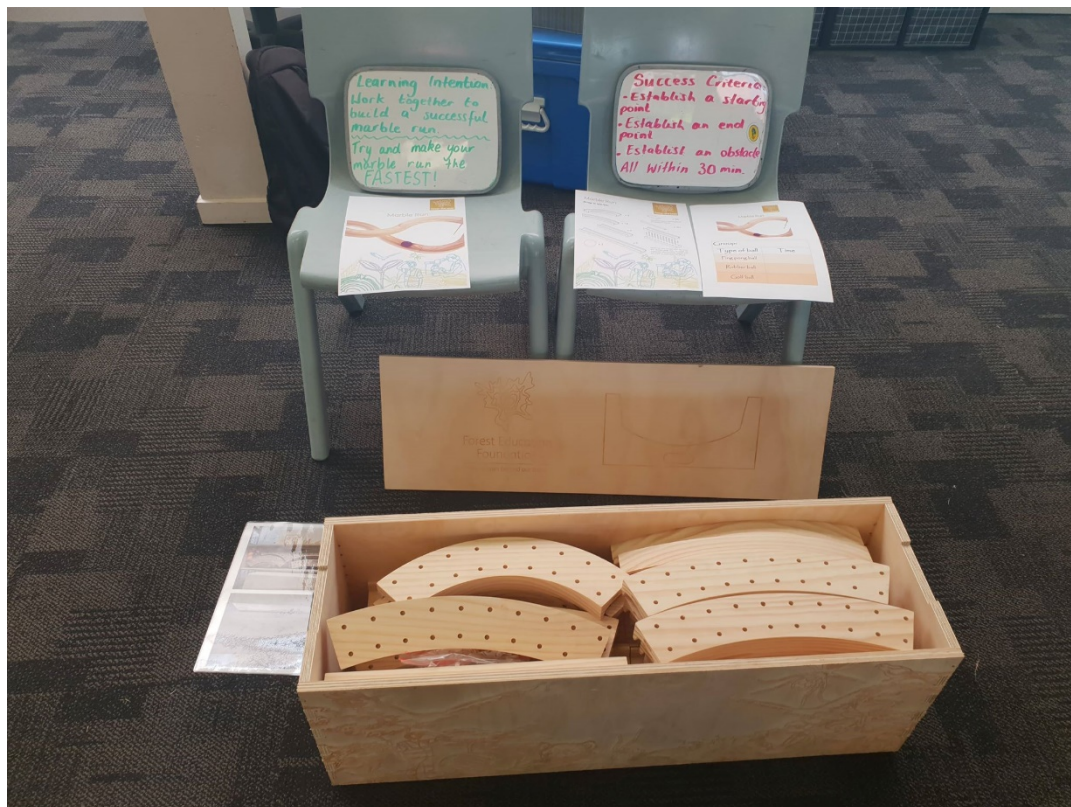 Learning Intention
Work together to
build a successful
marble run.
Try and make your
marble run the
FASTEST!
Success Criteria
- Establish a starting
point
- Establish an end
point
- Establish an obstacle
All within 30 min.
Marble Run
Marble Run
Group:
Type of ball Time
Ping pong ball
Rubber ball
Forest Education
Foundation